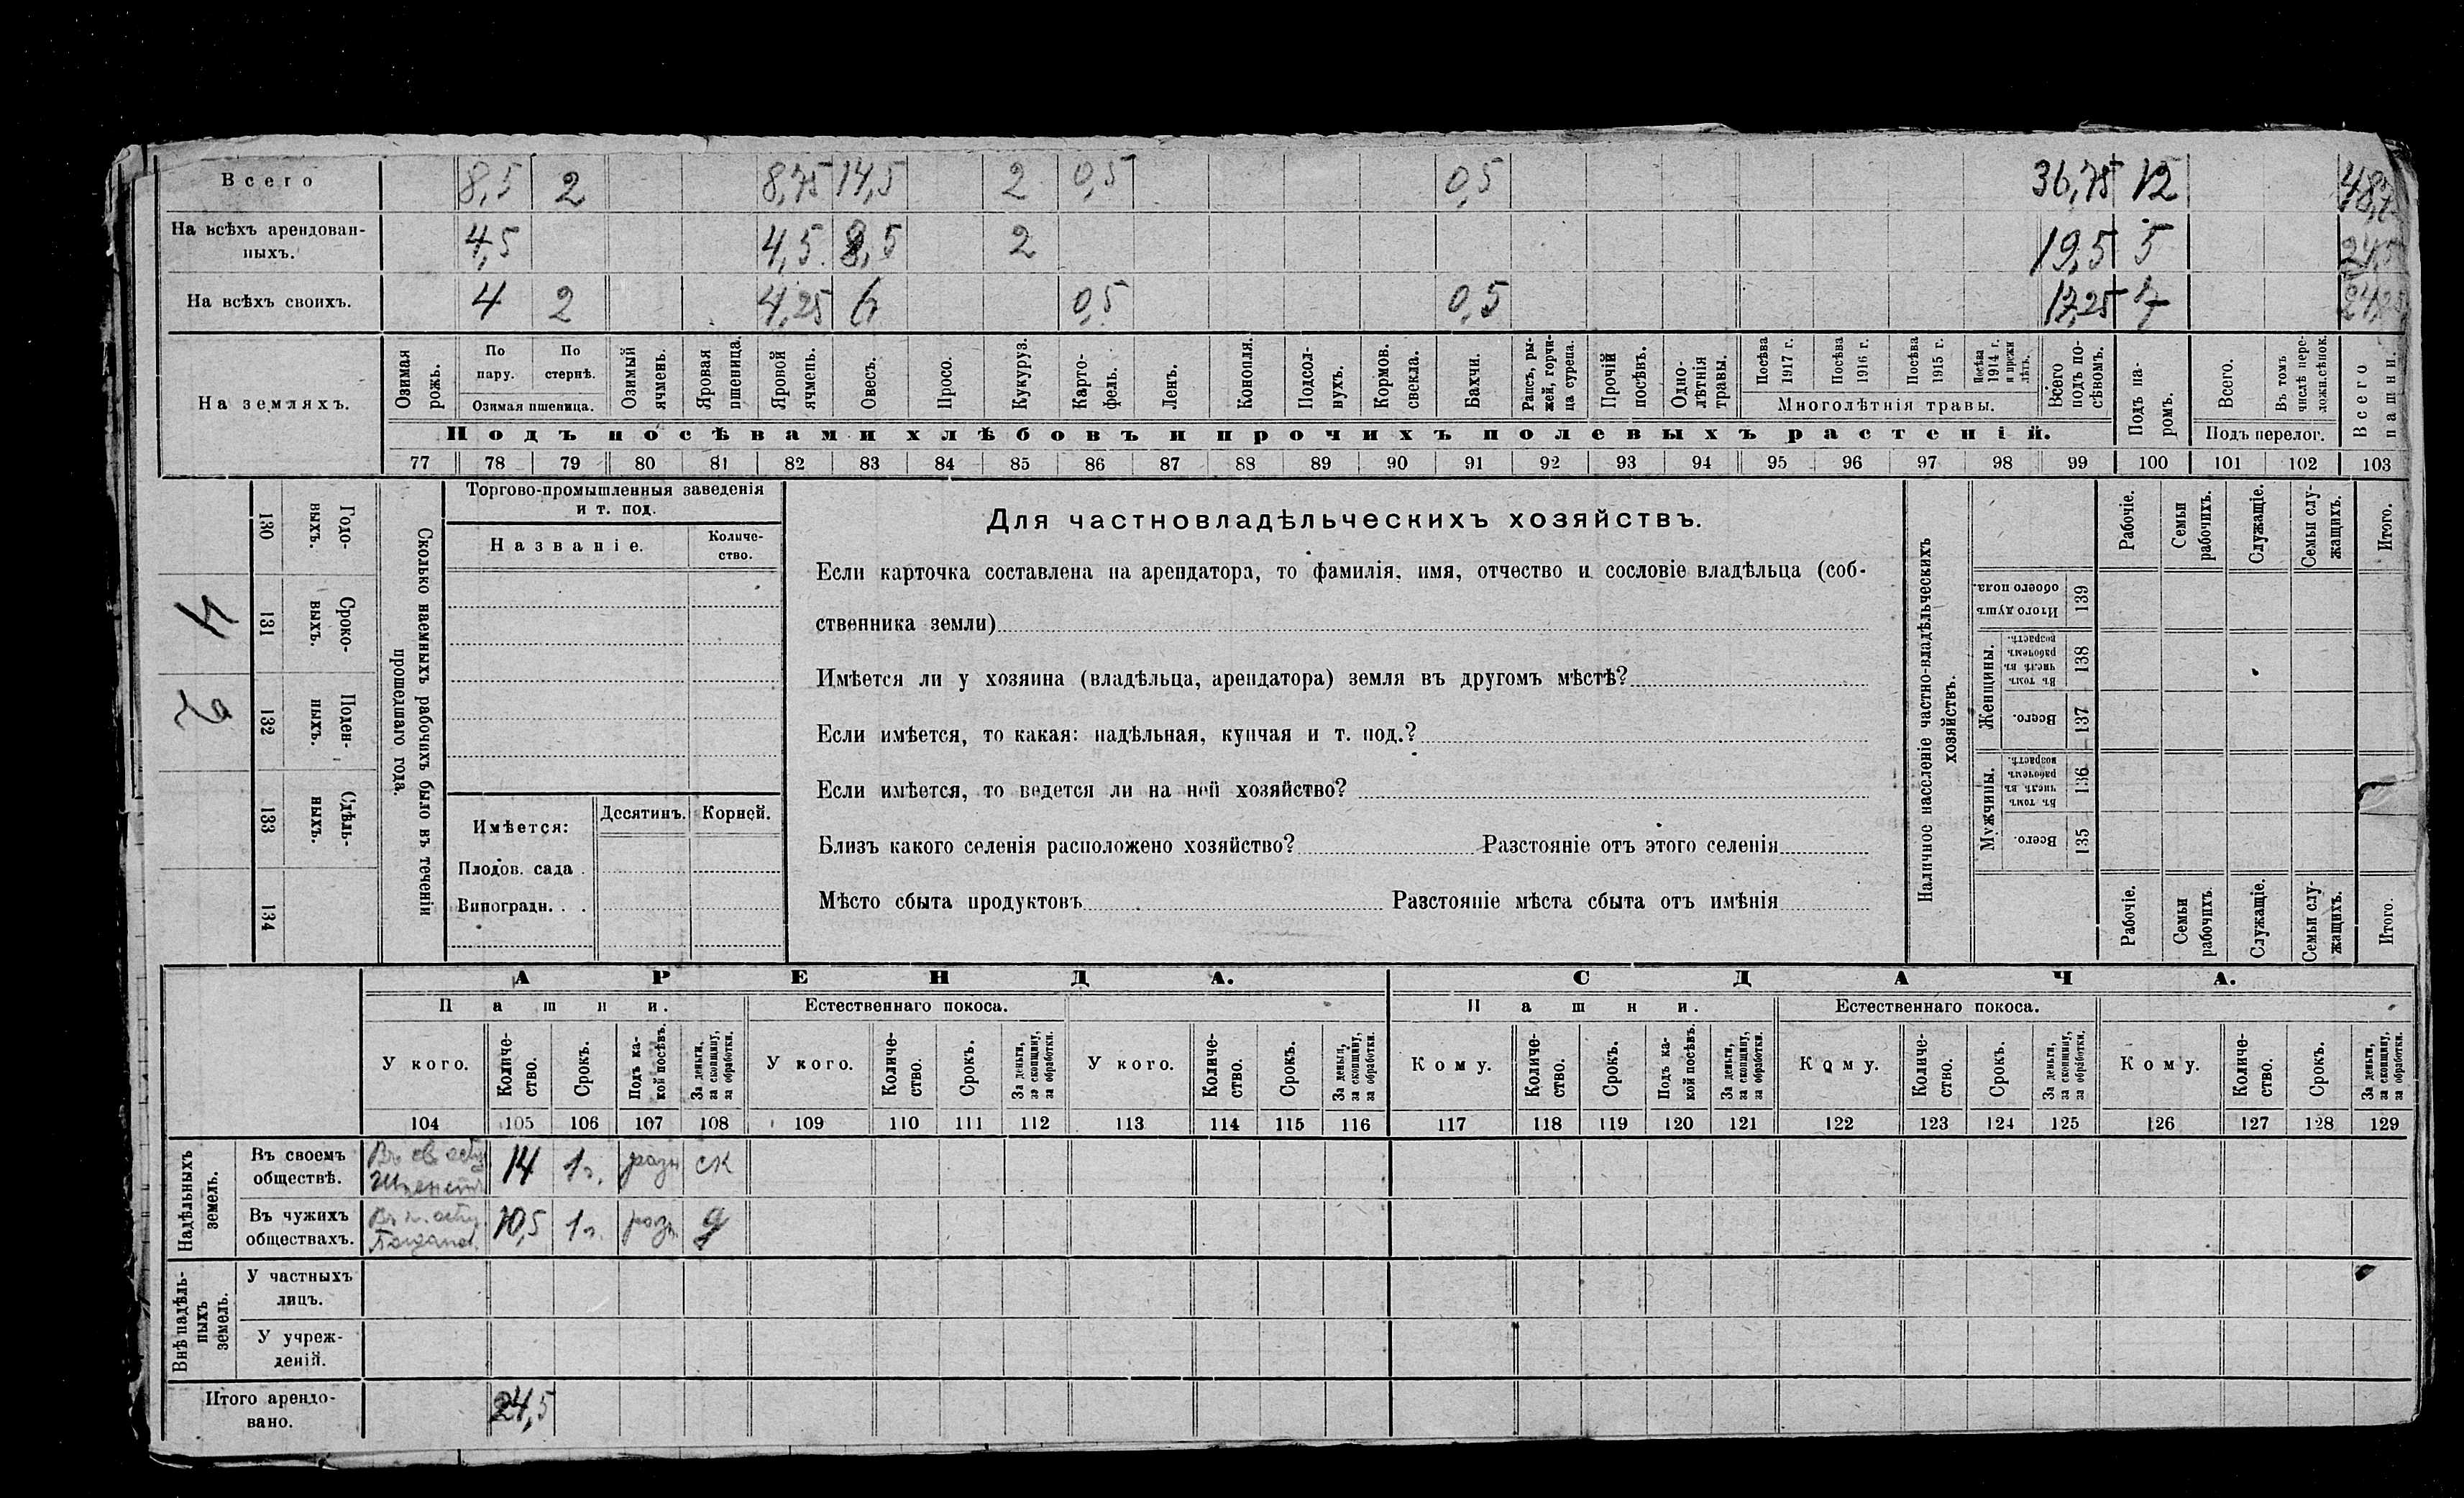 Всего 8,5 2 8,75 14,5 2 0,5 0,5 36,75 12
На всѣхъ арендован-
ныхъ. 4,5 4,5 8,5 2 19,5 5 24,5
На всѣхъ своихъ. 4 2 4,25 6 0,5 0,5 17,25 7 24,25
На земляхъ.
Озимая рожь.
По пару.
По стернѣ.
Озимая пшеница.
Озимый ячмень.
Яровая пшеница.
Яровой ячмень.
Овесъ.
Просо.
Кукуруз.
Карто-
фель.
Ленъ.
Конопля.
Подсол-
нухъ.
Кормов.
свекла.
Бахчи.
Рапсъ, ры-
жей, горчи-
ца сурепа.
Прочій
посѣвъ.
Одно-
лѣтнія
травы.
Посѣва
1917 г.
Посѣва
1916 г.
Посѣва
1915 г.
Посѣва
1914 г.
и прежн
лѣтъ.
Многолѣтнія травы.
Всего
подъ по-
сѣвомъ.
Подъ посѣвами хлѣбовъ и прочихъ полевыхъ растеній.
Подъ па-
ромъ.
Всего.
Въ томъ
числѣ пере-
ложн.сѣнок.
Подъ перелог.
Всего
пашни.
77 78 79 80 81 82 83 84 85 86 87 88 89 90 91 92 93 94 95 96 97 98 99 100 101 102 103
Сколько наемныхъ рабочихъ было въ теченіи
прошедшаго года.
Годо-
выхъ.
130
Сроко-
выхъ.
131
4
Поден-
ныхъ.
132
Сдѣль-
ныхъ.
133
134
Торгово-промышленныя заведенія
и т. под.
Названіе.
Количе-
ство.
Имѣется:
Десятинъ.
Корней.
Плодов. сада .
Виноградн. . .
Для частновладѣльческихъ хозяйствъ.
Если карточка составлена на арендатора, то фамилія, имя, отчество и сословіе владѣльца (соб-
ственника земли)
Имѣется ли у хозяина (владѣльца, арендатора) земля въ другомъ мѣстѣ?
Если имѣется, то какая: надѣльная, купчая и т. под.?
Если имѣется, то ведется ли на ней хозяйство?
Близъ какого селенія расположено хозяйство? Разстояніе отъ этого селенія
Мѣсто сбыта продуктовъ Разстояніе мѣста сбыта отъ имѣнія
Наличное населеніе частно-владѣльческихъ
хозяйствъ.
Рабочіе.
Семьи
рабочихъ.
Служащіе.
Семьи слу-
жащихъ.
Итого.
Итого душъ
обоего пола.
139
Женщины.
Въ томъ
числѣ въ
рабочемъ
возрастѣ.
138
Всего.
137
Мужчины.
Въ томъ
числѣ въ
рабочемъ
возрастѣ.
136
Всего.
135
Рабочіе.
Семьи
рабочихъ.
Служащіе.
Семьи слу-
жащихъ.
Итого.
АРЕНДА. СДАЧА.
Пашни. Естественнаго покоса. Пашни. Естественнаго покоса.
У кого.
Количе-
ство.
Срокъ.
Подъ ка-
кой посѣвъ.
За деньги,
за скопщину,
за обработки.
У кого.
Количе-
ство.
Срокъ.
За деньги,
за скопщину,
за обработки.
У кого.
Количе-
ство.
Срокъ.
За деньги,
за скопщину,
за обработки.
Кому.
Количе-
ство.
Срокъ.
Подъ ка-
кой посѣвъ.
За деньги,
за скопщину,
за обработки.
Кому.
Количе-
ство.
Срокъ.
За деньги,
за скопщину,
за обработки.
Кому.
Количе-
ство.
Срокъ.
За деньги,
за скопщину,
за обработки.
104 105 106 107 108 109 110 111 112 113 114 115 116 117 118 119 120 121 122 123 124 125 126 127 128 129
Надѣльныхъ
земель.
Въ своемъ
обществѣ. 14 1г. разн ск
Въ чужихъ
обществахъ. 10,5 1г. разн д
Внѣ надѣль-
ныхъ
земель.
У частныхъ
лицъ.
У учреж-
деній.
Итого арендо-
вано. 24,5